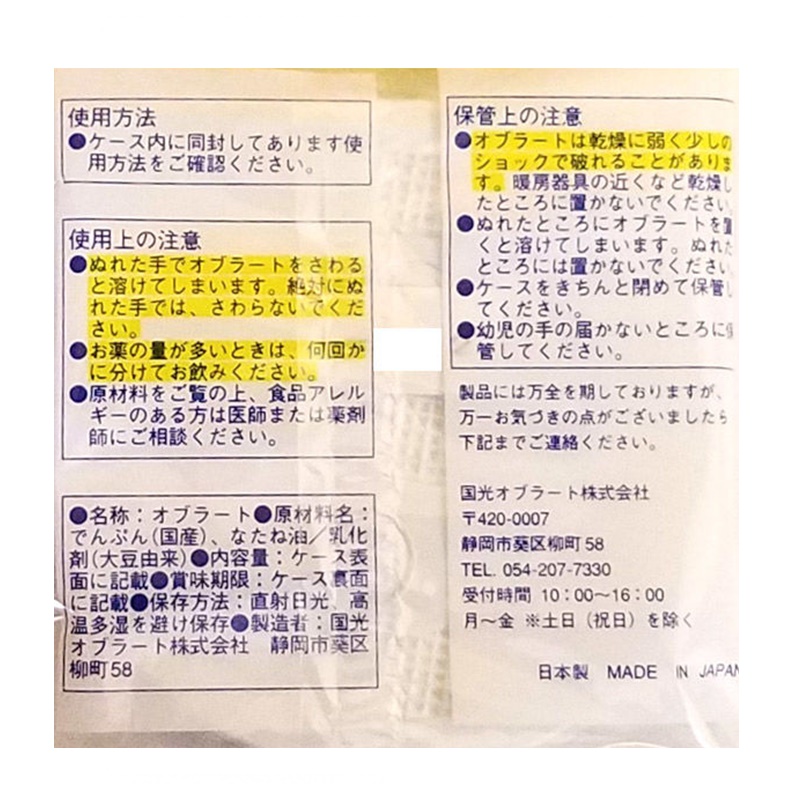 使用方法
●ケース内に同封してあります使
用方法をご確認ください。
使用上の注意
●ぬれた手でオブラートをさわる
と溶けてしまいます。絶対にぬ
れた手では、さわらないでくだ
さい。
●お薬の量が多いときは、何回か
に分けてお飲みください。
●原材料をご覧の上、食品アレル
ギーのある方は医師または薬剤
師にご相談ください。
●名称：オブラート●原材料名：
でんぷん(国産)、なたね油／乳化
剤(大豆由来)●内容量：ケース表
面に記載●賞味期限：ケース裏面
に記載●保存方法：直射日光、高
温多湿を避け保存●製造者：国光
オブラート株式会社　静岡市葵区
柳町58
保管上の注意
●オブラートは乾燥に弱く少しの
ショックで破れることがありま
す。暖房器具の近くなど乾燥し
たところに置かないでください。
●ぬれたところにオブラートを置
くと溶けてしまいます。ぬれた
ところには置かないでください。
●ケースをきちんと閉めて保管し
てください。
●幼児の手の届かないところに保
管してください。
製品には万全を期しておりますが、
万一お気づきの点がございましたら
下記までご連絡ください。
国光オブラート株式会社
〒420-0007
静岡市葵区柳町58
TEL. 054-207-7330
受付時間 10：00～16：00
月～金 ※土日（祝日）を除く
日本製 MADE IN JAPAN